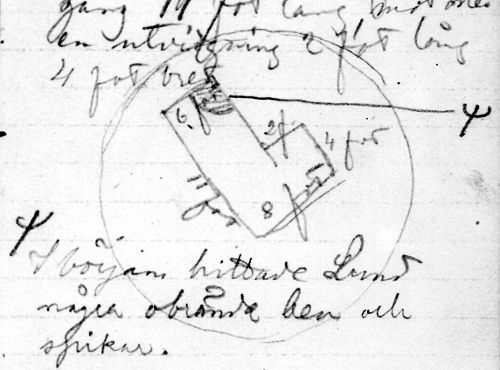 gång 11 fot lång, mot
en utvidgning 2 fot lång
4 fot bred
6 f
2 f
4 fot
11 fot
8 fot
I början hittade Lund
några obrända ben och
spikar.